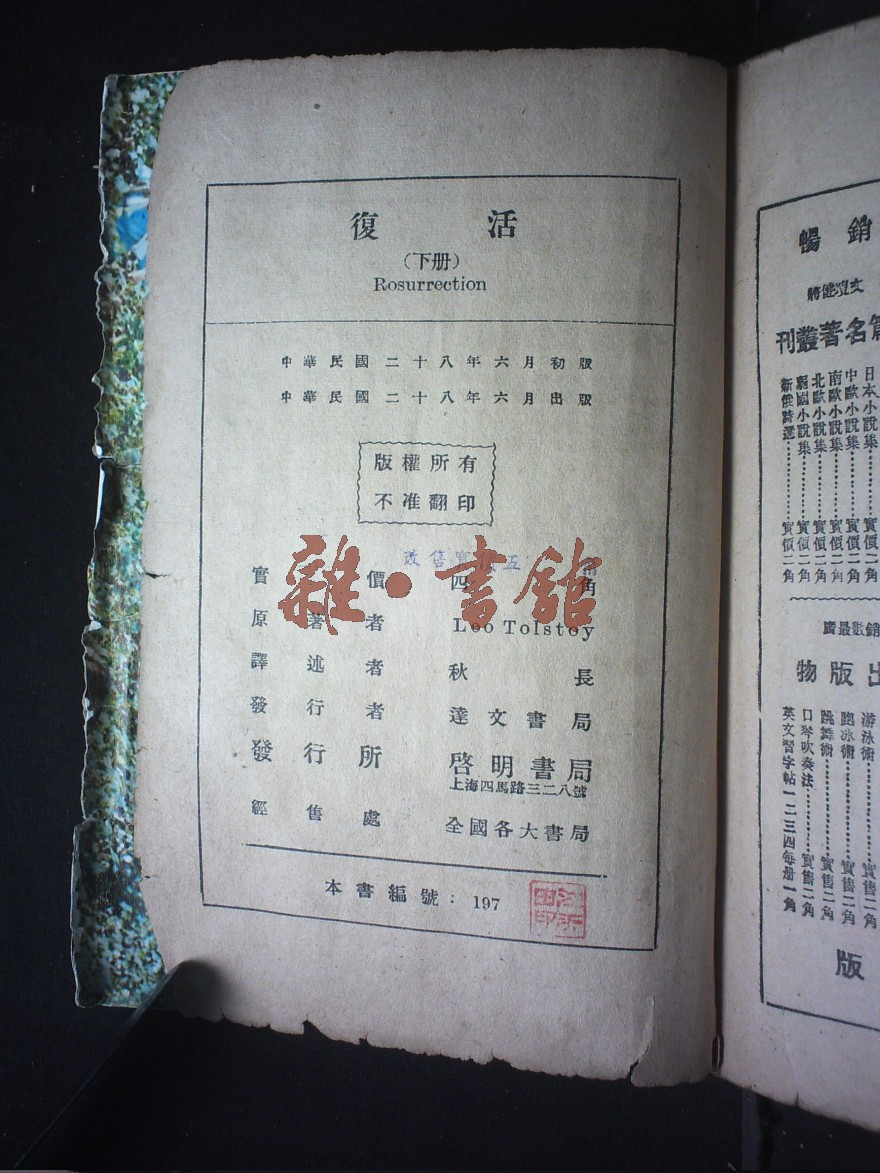 復活
(下册)
Rosurrection
中華民國二十八年六月初版
中華民國二十八年六月出版
版權所有
不准翻印
改售實價五
實價 四角
原著者 Leo Tolstoy
譯述者 秋長
發行者 達文書局
發行所 啓明書局
上海四馬路三二八號
經售處 全國各大書局
本書編號：197
雜·書舘
暢銷
名著叢刊
日本小說集……實價二角
中歐小說集……實價二角
南歐小說集……實價二角
北歐小說集……實價二角
新俄詩選……實價二角
銷數最廣
出版物
游泳術……實售二角
跑冰術……實售二角
跳舞術……實售二角
口琴吹奏法……實售二角
英文習字帖一二三四每册一角
版